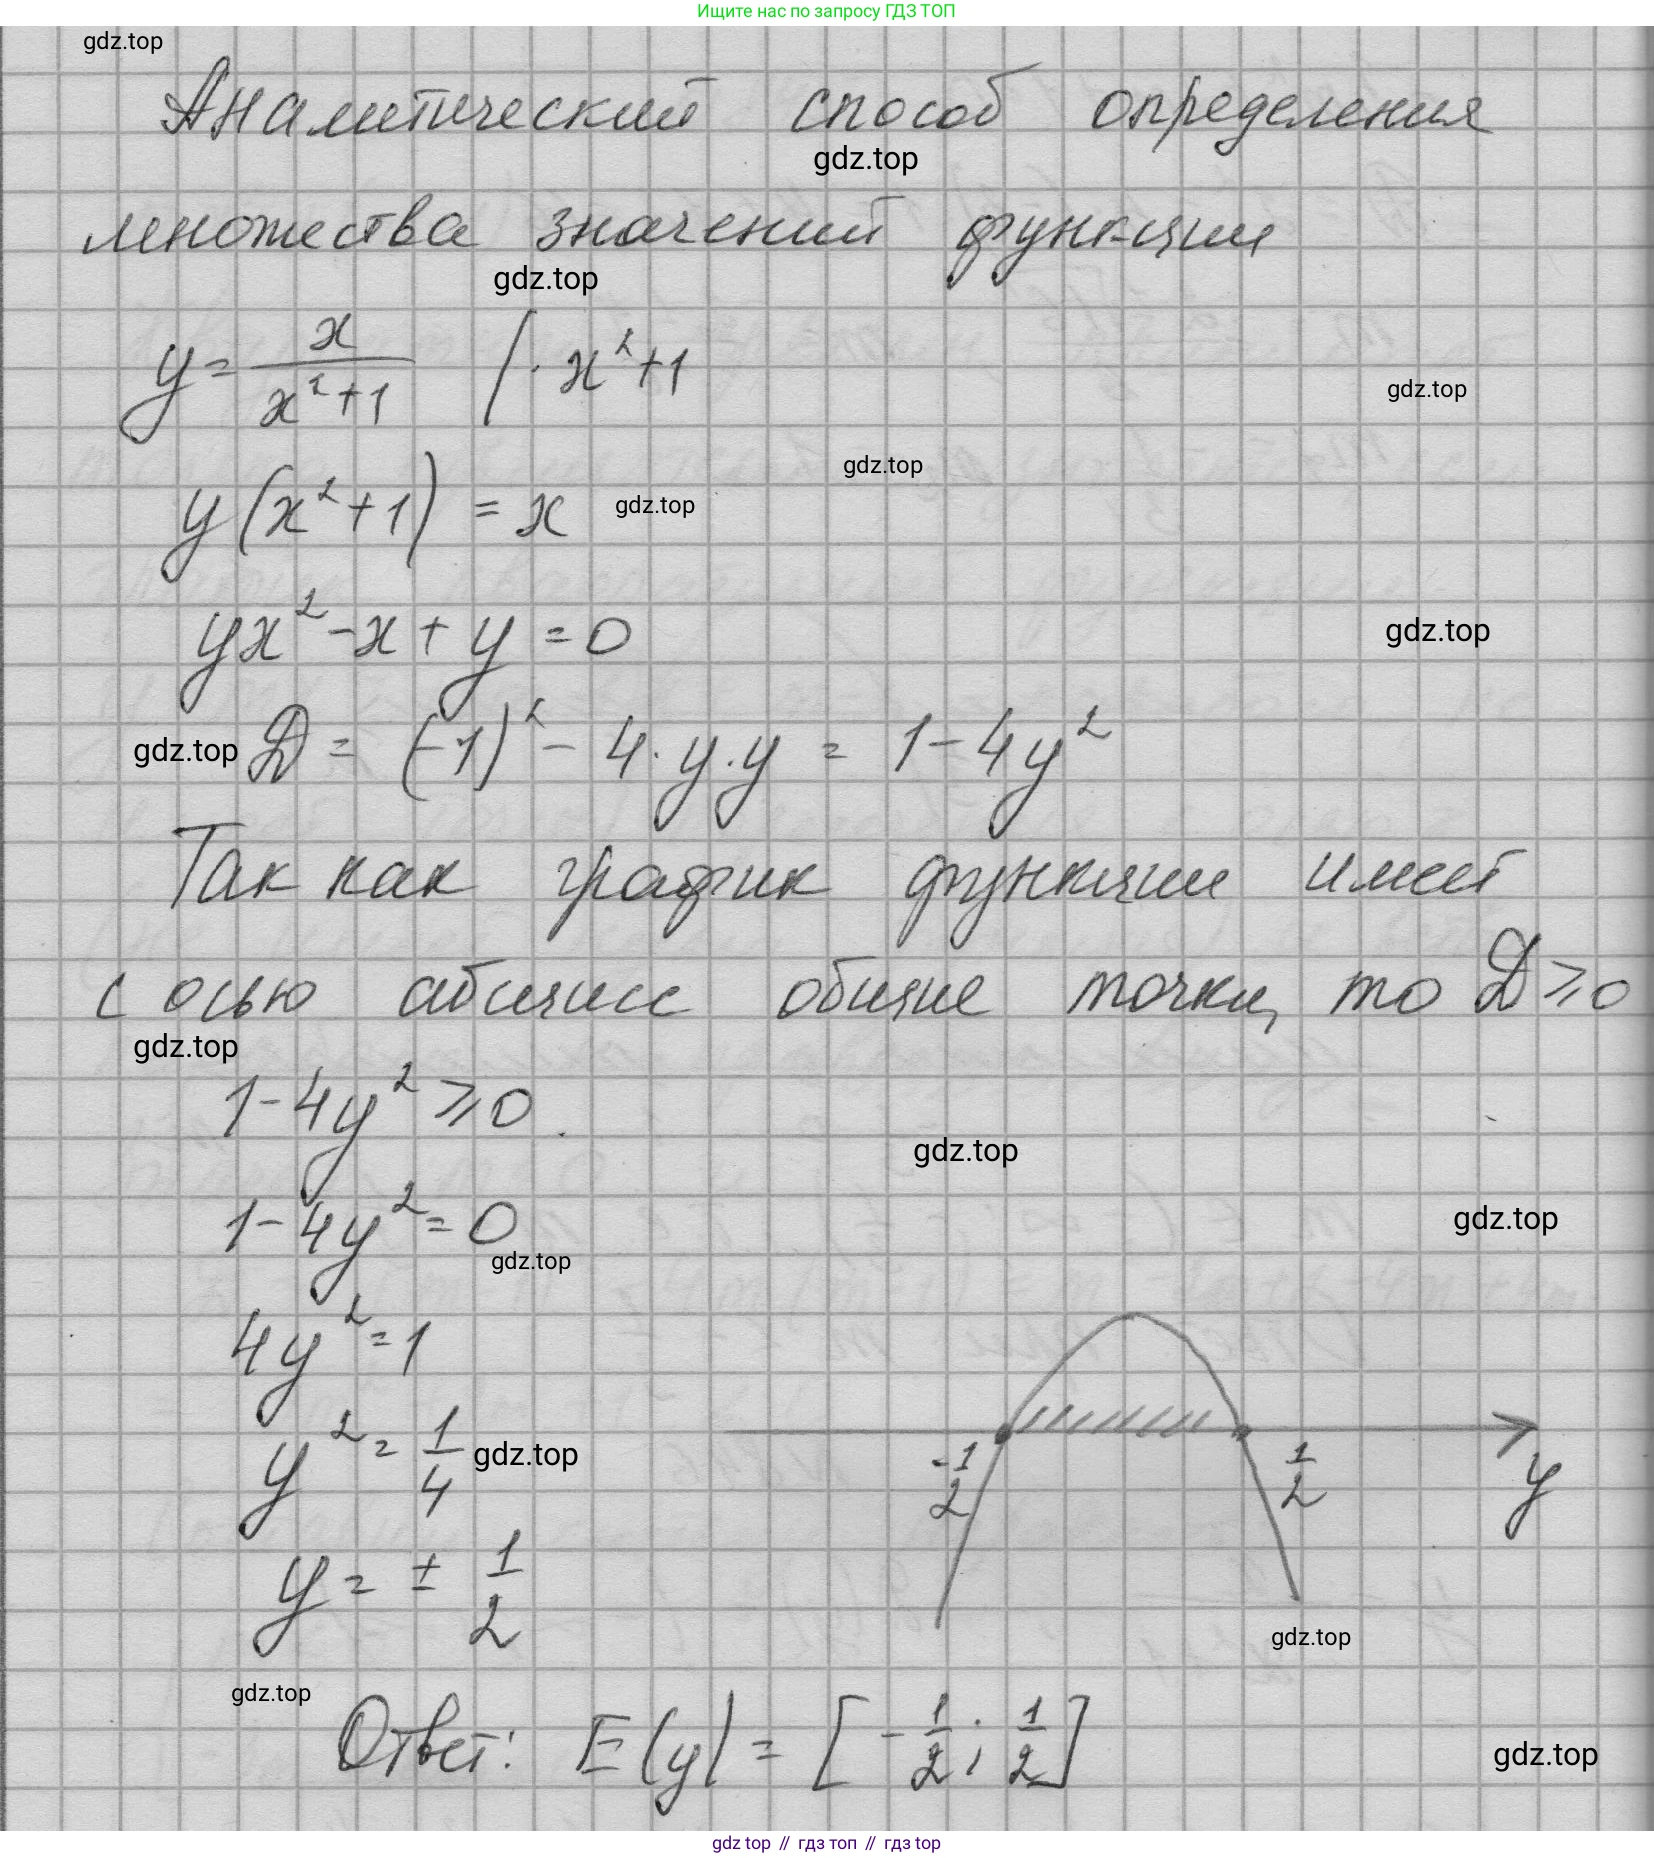 Ищите нас по запросу ГДЗ ТОП
gdz.top
Аналитический способ определения
gdz.top
множества значений функции
gdz.top
y = x/(x²+1) | · x²+1
gdz.top
gdz.top
y(x²+1) = x gdz.top
yx² - x + y = 0
gdz.top
gdz.top D = (-1)² - 4·y·y = 1 - 4y²
Так как график функции имеет
с осью абсцисс общие точки, то D ≥ 0
gdz.top
1 - 4y² ≥ 0
gdz.top
1 - 4y² = 0
gdz.top
gdz.top
4y² = 1
y² = 1/4 gdz.top
-1/2 1/2 y
y = ± 1/2
gdz.top
gdz.top
Ответ: E(y) = [-1/2; 1/2]
gdz.top
gdz top // гдз топ // гдз top